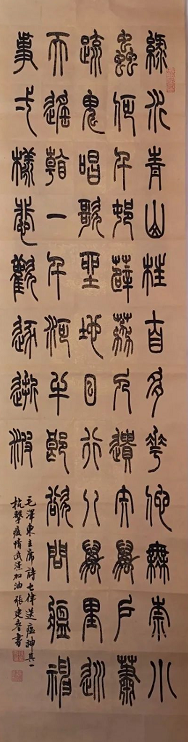 綠水青山枉自多華佗無奈小
蟲何千村薜荔人遺矢萬戶蕭
疏鬼唱歌坐地日行八萬里巡
天遙看一千河牛郎欲問瘟神
事弌樣悲歡逐逝波
毛澤東主席詩七律送瘟神其一
抗擊疫情武漢加油 張建書